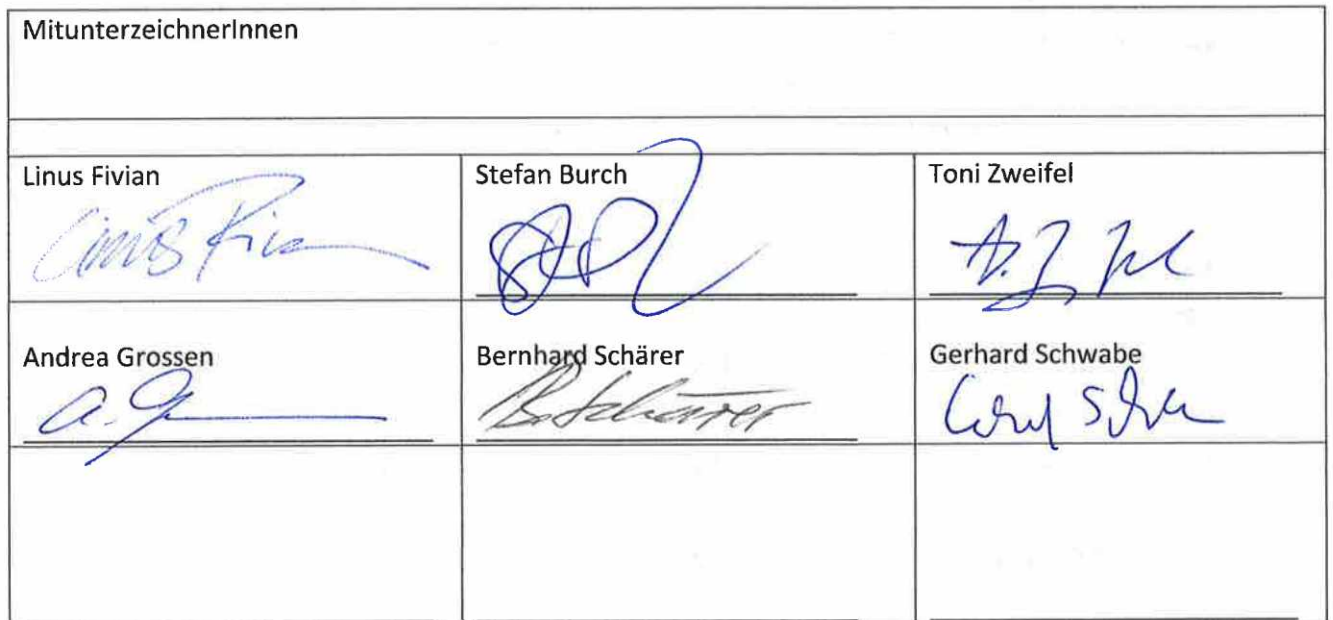 MitunterzeichnerInnen
Linus Fivian
Stefan Burch
Toni Zweifel
Linus Fivian
Andrea Grossen
Bernhard Schärer
Gerhard Schwabe
B. Schärer